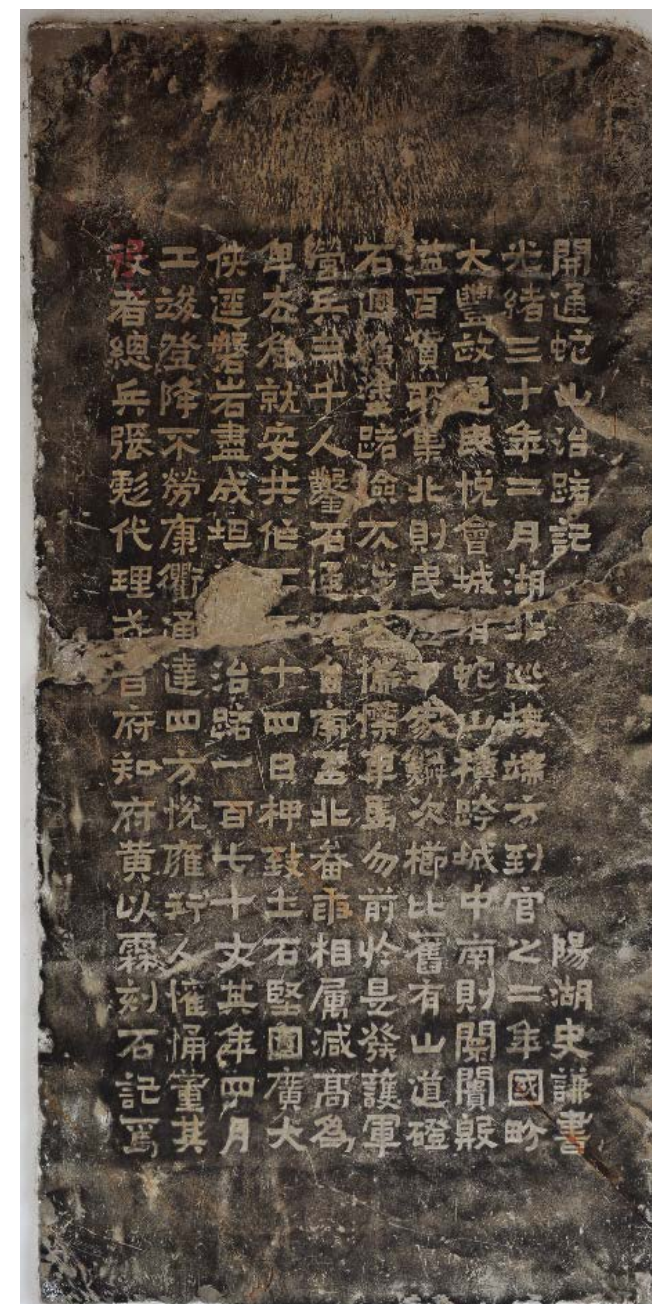 開通蛇山治路記 陽湖史謙書
光緒三十年二月湖北巡撫端方到官之二年國
大豐政通民悅會城有蛇山橫跨城中南則闤闠殷
溢百貨聚集北則民萬家鱗次櫛比舊有山道磴
石迴塗路險仄步慘慄車馬勿前於是發護軍
營兵五千人鑿石通自南至北畚臿相屬減高為
卑去危就安共作十四日柙致土石堅固廣大
俠逕磐岩盡成坦治路一百七十丈其年四月
工竣登降不勞康衢通達四方悅雍行人懽悀董其
役者總兵張彪代理武昌府知府黃以霖刻石記焉